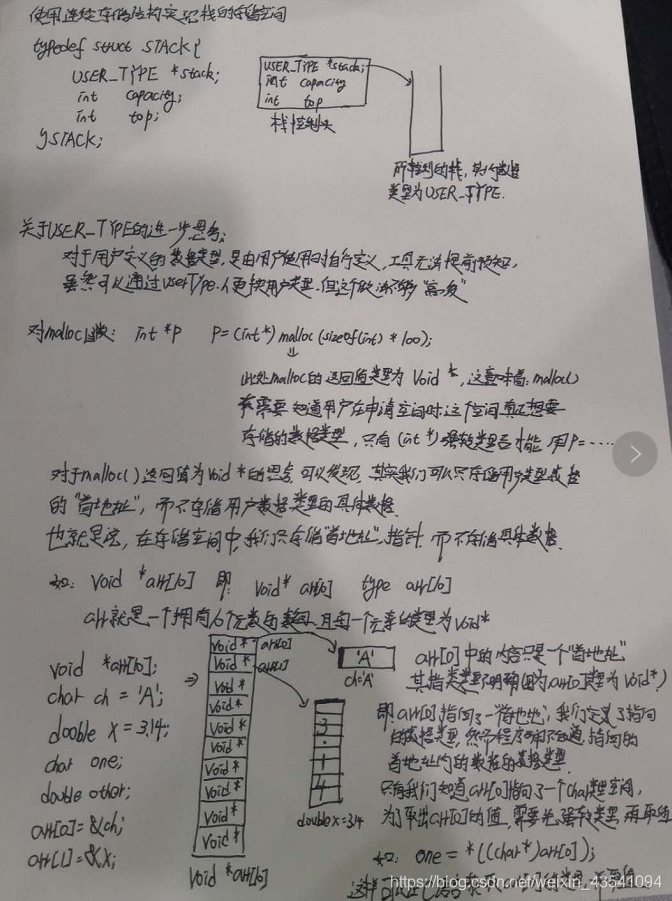 使用连续存储结构实现栈的存储空间
typedef struct STACK{
USER_TYPE *stack;
int capacity;
int top;
}STACK;
USER_TYPE *stack;
int capacity
int top
栈控制头
所指到的栈,其内数据
类型为USER_TYPE.
关于USER_TYPE的进一步思考:
对于用户定义的数据类型,是由用户使用时自行定义,工具无法提前预知,
虽然可以通过userType.h更换用户类型.但这个做法不够“高级”
对malloc函数: int *p P=(int*) malloc(sizeof(int) * 100);
此处malloc的返回值类型为 Void *, 这意味着: malloc()
不需要知道用户在申请空间时.这个空间真正想要
存储的数据类型, 只有 (int *) 强转类型后才能 用P=······
对于malloc()返回值为void *的思考,可以发现,其实我们可以只存储用户类型数据
的“首地址”,而不存储用户数据类型的具体数据.
也就是说,在存储空间中,我们只存储“首地址”,指针.而不存储具体数据.
如: Void *arr[10] 即: Void* arr[10] type arr[10]
arr就是一个拥有10个元素的数组.且每一个元素的类型为Void*
void *arr[10];
char ch = 'A';
double x = 3.14;
char one;
double other;
arr[0] = &ch;
arr[1] = &x;
Void* arr[0]
Void* arr[1]
Void *
Void*
Void*
Void*
Void*
Void*
Void*
Void*
Void *arr[10]
'A'
ch='A'
3
.
1
4
double x=3.14
arr[0]中的内容只是一个“首地址”
其指类型不明确(因为arr[0]类型为Void*)
即:arr[0]指向了一个首地址,我们定义了指向
的数据类型,然而程序却不知道指向的
首地址内的数据的数据类型
只有我们知道arr[0]指向了一个char类型空间,
为了取出arr[0]的值,需要先强转类型.再取值
如: one = *((char*)arr[0]);
https://blog.csdn.net/weixin_43541094